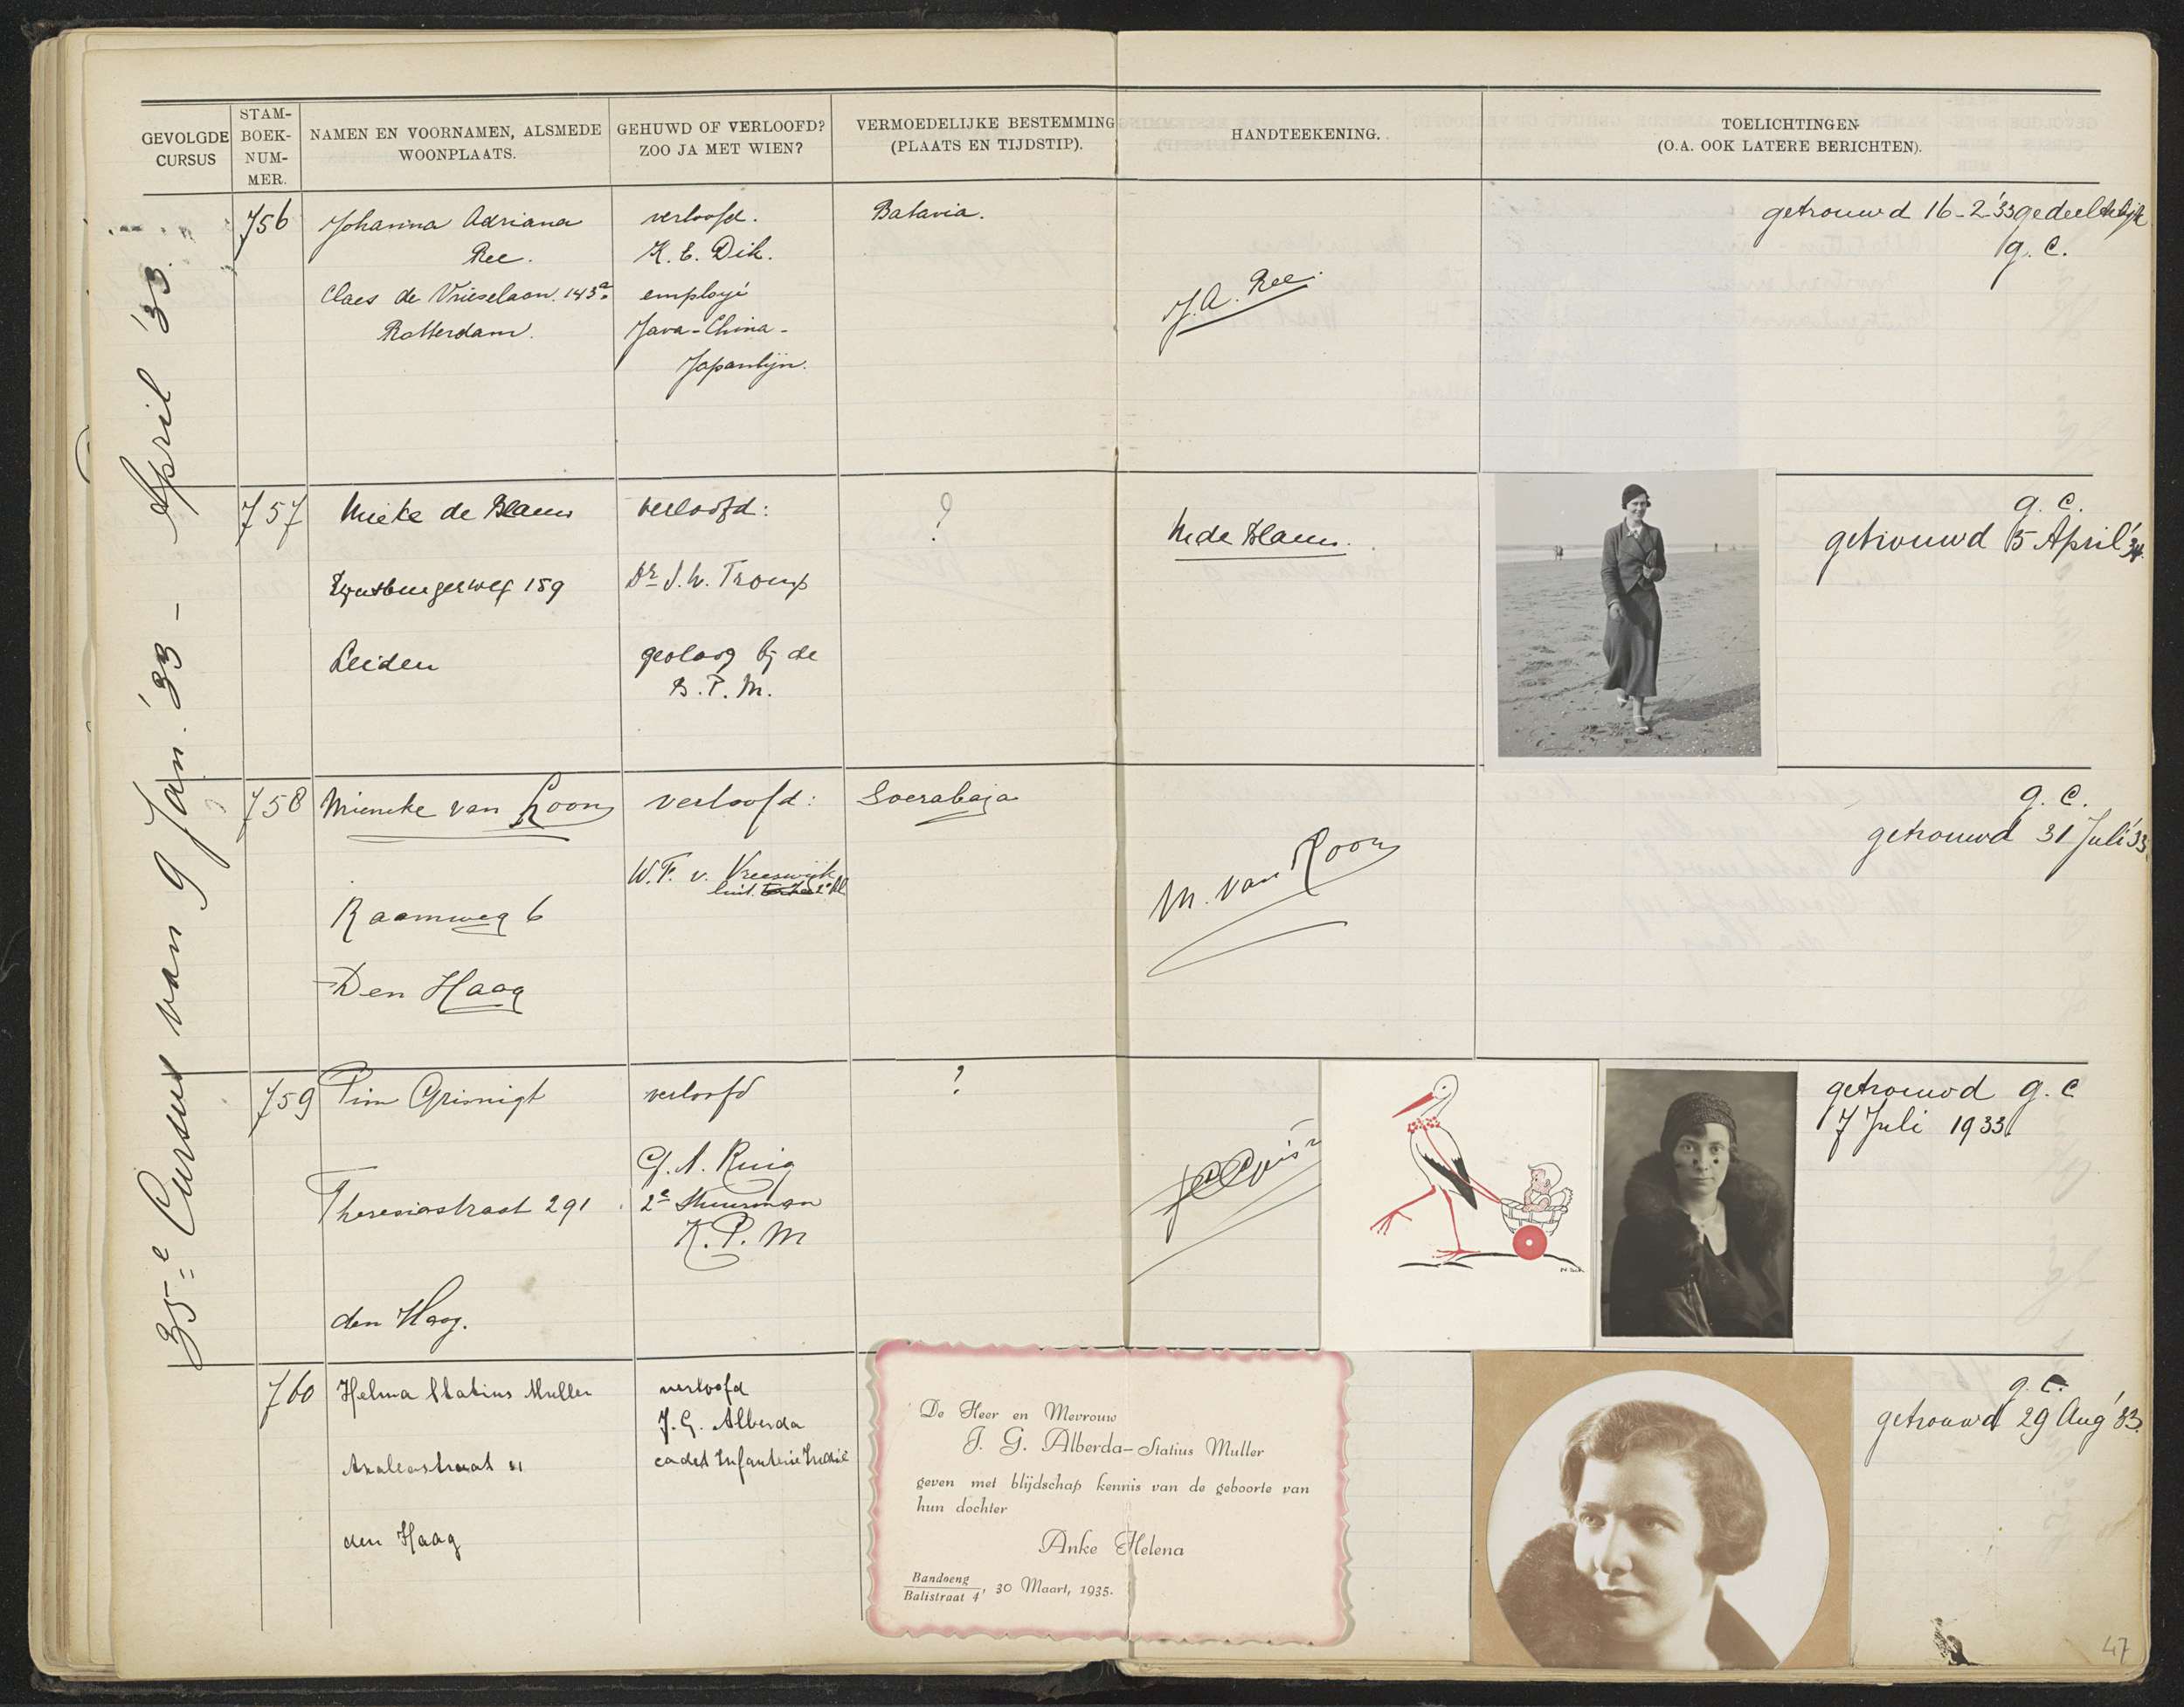 GEVOLGDE CURSUS
STAM-BOEK-NUM-MER.
NAMEN EN VOORNAMEN, ALSMEDE WOONPLAATS.
GEHUWD OF VERLOOFD? ZOO JA MET WIEN?
VERMOEDELIJKE BESTEMMING (PLAATS EN TIJDSTIP).
HANDTEEKENING.
TOELICHTINGEN (O.A. OOK LATERE BERICHTEN).
35e Cursus van 9 Jan. '33 - April '33.
756
Johanna Adriana
Ree.
Claes de Vrieselaan. 143a.
Rotterdam.
verloofd.
K. E. Dik.
employé
Java-China-
Japanlijn.
Batavia.
J. A. Ree.
getrouwd 16-2-'33 gedeeltelijk
g. C.
757
Mieke de Blauw
159
Leiden
verloofd:
Dr J. W. Tromp
geoloog bij de
B. P. M.
?
M de Blauw.
g. C.
getrouwd 5 April '34.
758
Mieneke van Loon
Raamweg 6
Den Haag
verloofd:
W. F. v. Vreeswijk
luit. 2e kl
Soerabaja
M. van Loon
g. C.
getrouwd 31 Juli '33
759
Pim
Theresiastraat 291
den Haag.
verloofd
G. A. Ruig
2e Stuurman
K. P. M
?
getrouwd g. C
17 Juli 1933
760
Helma Statius Muller
11
den Haag
verloofd
J. G. Alberda
cadet Infanterie Indië
De Heer en Mevrouw
J. G. Alberda-Statius Muller
geven met blijdschap kennis van de geboorte van
hun dochter
Anke Helena
Bandoeng
Balistraat 4, 30 Maart, 1935.
g. C.
getrouwd 29 Aug '33.
47